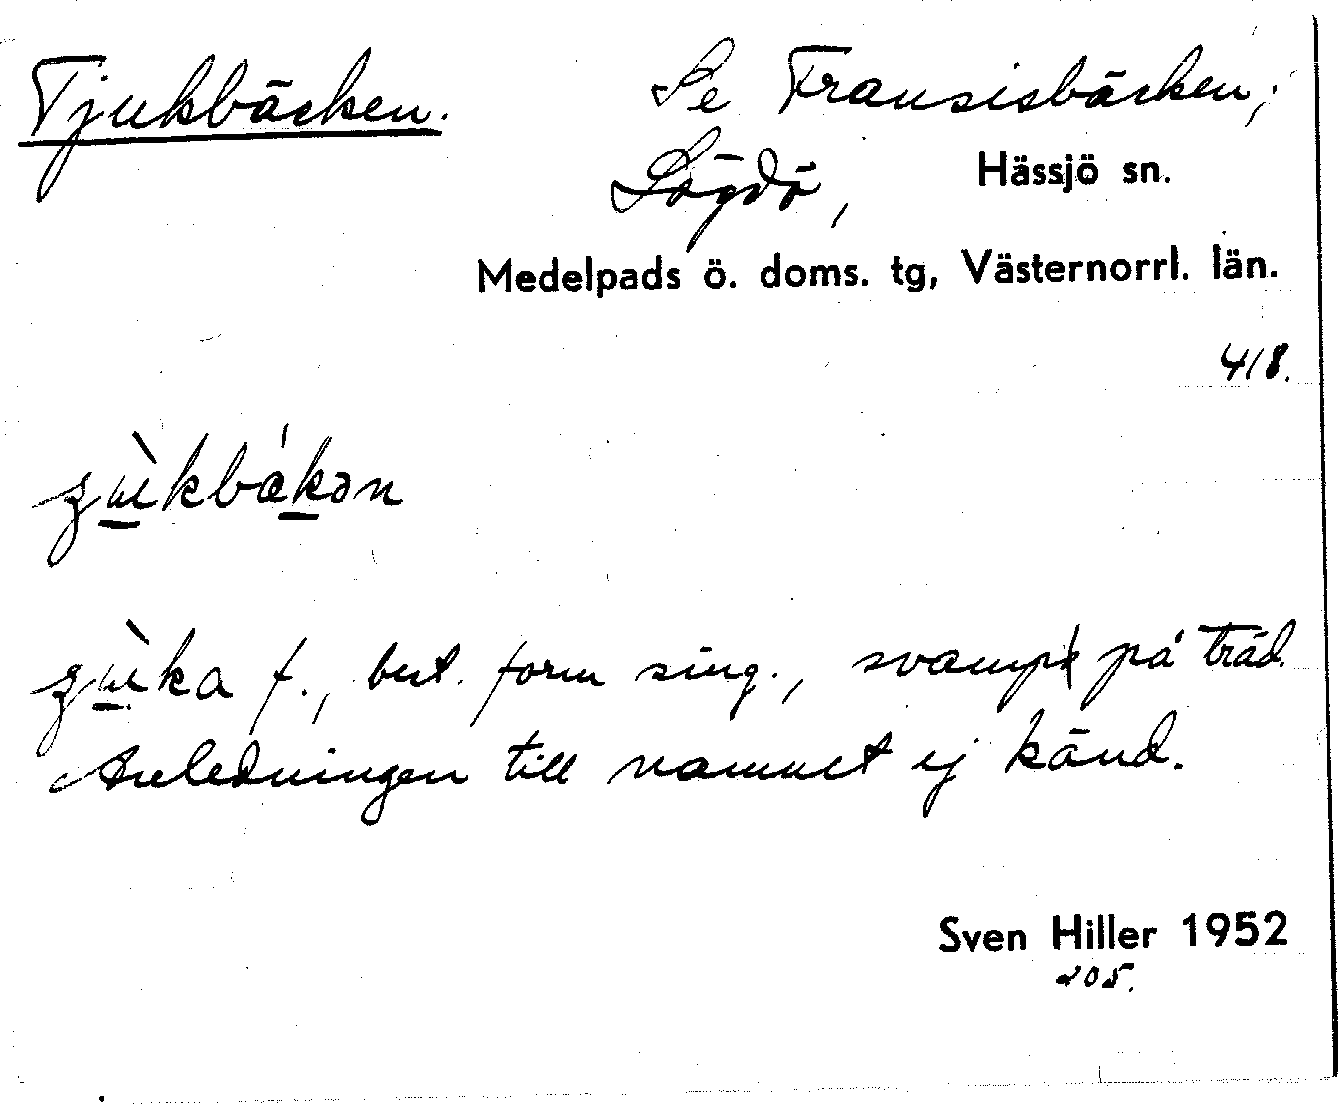 Tjukbäcken. Se Fransisbäcken;
Lögdö, Hässjö sn.
Medelpads ö. doms. tg, Västernorrl. län.
418.
best. form sing., svamp på träd.
Anledningen till namnet ej känd.
Sven Hiller 1952
205.